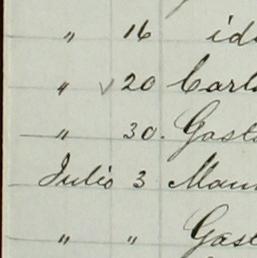 " 16 id
" √20 Carl
" 30. Gast
Julio 3 Mau
" " Gast